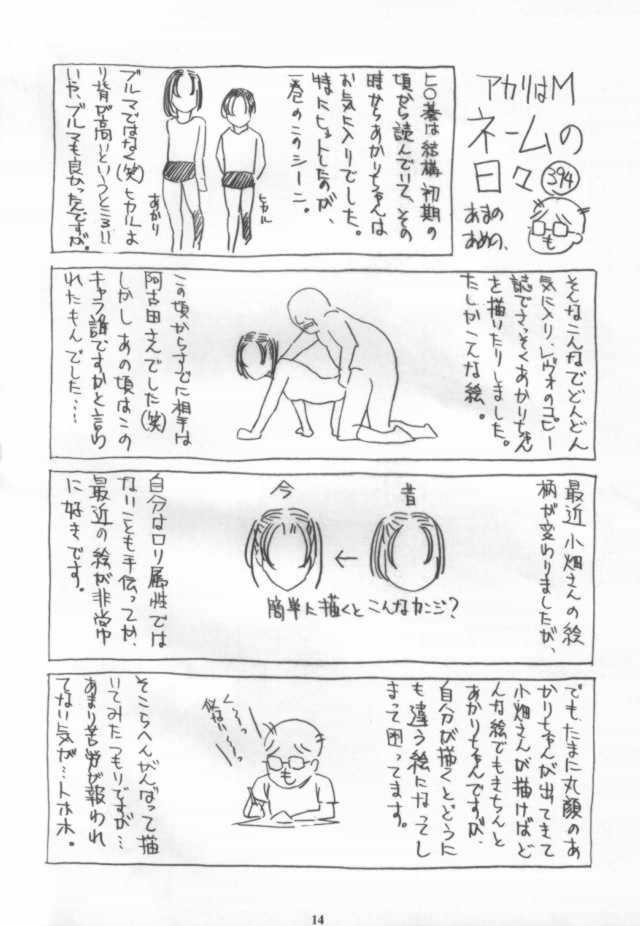 アカリはM
ネームの
日々
394
あまの
あめの、
も
ヒ○碁は結構初期の
頃から読んでいて、その
時からあかりちゃんは
お気に入りでした。
特にヒットしたのが、
一巻のこのシーン。
ヒカル
あかり
ブルマではなく(笑)ヒカルよ
り背が高いというところに
いや、ブルマも良かったんですが。
そんなこんなでどんどん
気に入り、レヴォのコピー
誌でさっそくあかりちゃん
を描いたりしました。
たしかこんな絵。
この頃からすでに相手は
阿古田さんでした(笑)
しかしあの頃はこの
キャラ誰ですかと言わ
れたもんでした…
最近小畑さんの絵
柄が変わりましたが、
昔
←
今
簡単に描くとこんなカンジ?
自分はロリ属性では
ないことも手伝ってか、
最近の絵が非常
に好きです。
でもたまに丸顔のあ
かりちゃんが出てきて
小畑さんが描けばど
んな絵でもきちんと
あかりちゃんですが、
自分が描くとどうに
も違う絵になってし
まって困ってます。
く〜〜っ
似ない〜〜っ
そこらへんがんばって描
いてみたつもりですが…
あまり苦労が報われ
てない気が…トホホ。
14